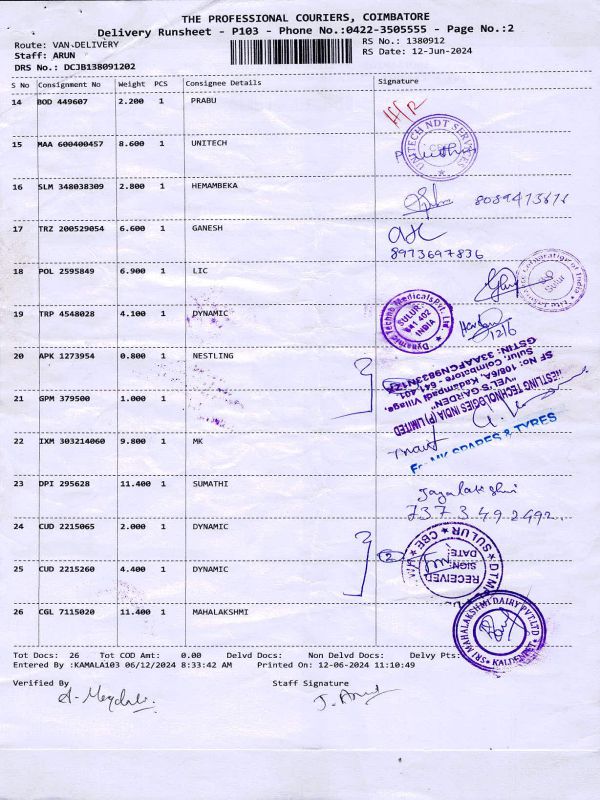 THE PROFESSIONAL COURIERS, COIMBATORE
Delivery Runsheet - P103 - Phone No.:0422-3505555 - Page No.:2
Route: VAN DELIVERY RS No.: 1380912
Staff: ARUN RS Date: 12-Jun-2024
DRS No.: DCJB138091202
S No Consignment No Weight PCS Consignee Details Signature
14 BOD 449607 2.200 1 PRABU
15 MAA 600400457 8.600 1 UNITECH
UNITECH NDT SERVICES
16 SLM 348038309 2.800 1 HEMAMBEKA
17 TRZ 200529054 6.600 1 GANESH
8973697836
18 POL 2595849 6.900 1 LIC
Sulur
19 TRP 4548028 4.100 1 DYNAMIC
Dynamic Techno Medicals Pvt. Ltd
SULUR
641 402
INDIA
12/6
20 APK 1273954 0.800 1 NESTLING
21 GPM 379500 1.000 1
NESTLING TECHNOLOGIES INDIA (P) LIMITED
"VEL'S GARDEN"
SF No: 108/6A, Kadampadi Village,
Sulur, Coimbatore - 641 401.
22 IXM 303214060 9.800 1 MK
For MK SPARES & TYRES
23 DPI 295628 11.400 1 SUMATHI
Jayalakshmi
7373492492.
24 CUD 2215065 2.000 1 DYNAMIC
2
SULUR CBE
RECEIVED
SIGN
DATE
25 CUD 2215260 4.400 1 DYNAMIC
26 CGL 7115020 11.400 1 MAHALAKSHMI
SRI MAHALAKSHMI DAIRY PVT LTD
Tot Docs: 26 Tot COD Amt: 0.00 Delvd Docs: Non Delvd Docs: Delvy Pts:
Entered By :KAMALA103 06/12/2024 8:33:42 AM Printed On: 12-06-2024 11:10:49
Verified By Staff Signature
J. Arul